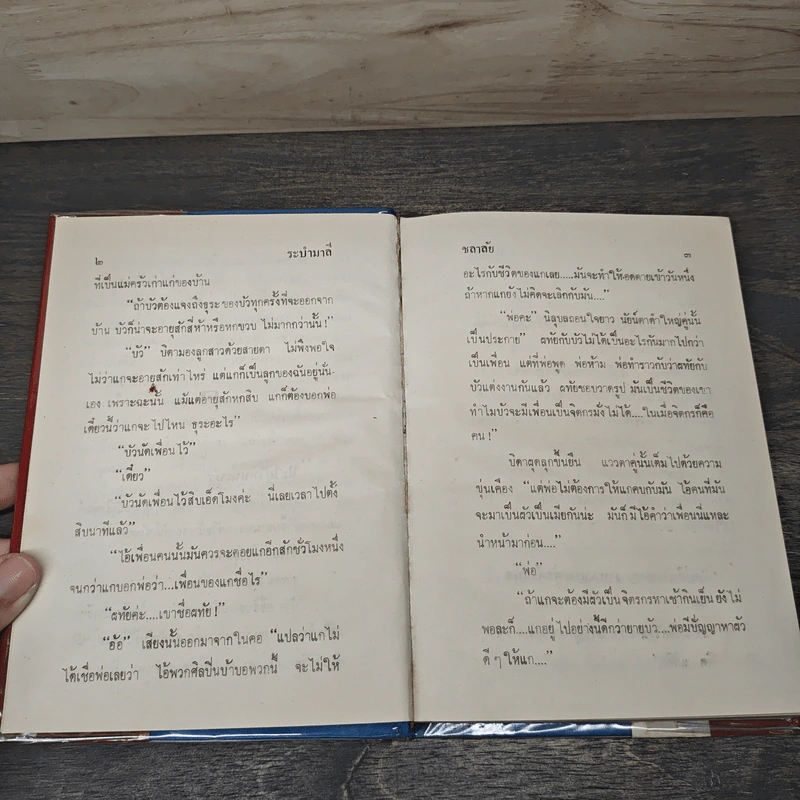 ๒ ระบำมาลี
ที่เป็นแม่ครัวเก่าแก่ของบ้าน
“ถ้าบัวต้องแจงถึงธุระของบัวทุกครั้งที่จะออกจาก
บ้าน บัวก็น่าจะอายุสักสี่ห้าหรือหกขวบ ไม่มากกว่านั้น!”
“บัว” บิดามองลูกสาวด้วยสายตา ไม่พึงพอใจ
ไม่ว่าแกจะอายุสักเท่าไหร่ แต่แกก็เป็นลูกของฉันอยู่นั่น-
เอง เพราะฉะนั้น แม้แต่อายุสักหกสิบ แกก็ต้องบอกพ่อ
เดี๋ยวนี้ว่าแกจะไปไหน ธุระอะไร”
“บัวนัดเพื่อนไว้”
“เดี๋ยว”
“บัวนัดเพื่อนไว้สิบเอ็ดโมงค่ะ นี่เลยเวลาไปตั้ง
สิบนาทีแล้ว”
“ไอ้เพื่อนคนนั้นมันควรจะคอยแกอีกสักชั่วโมงหนึ่ง
จนกว่าแกบอกพ่อว่า...เพื่อนของแกชื่อไร”
“ผทัยค่ะ....เขาชื่อผทัย!”
“อ้อ” เสียงนั้นออกมาจากในคอ “แปลว่าแกไม่
ได้เชื่อพ่อเลยว่า ไอ้พวกศิลปินบ้าบอพวกนี้ จะไม่ให้
ชลาลัย ๓
อะไรกับชีวิตของแกเลย.....มันจะทำให้อดตายเข้าวันหนึ่ง
ถ้าหากแกยังไม่คิดจะเลิกกับมัน....”
“พ่อคะ” นิลุบลถอนใจยาว นัยน์ตาดำใหญ่คู่นั้น
เป็นประกาย” ผทัยกับบัวไม่ได้เป็นอะไรกันมากไปกว่า
เป็นเพื่อน แต่ที่พ่อพูด พ่อห้าม พ่อทำราวกับว่าผทัยกับ
บัวแต่งงานกันแล้ว ผทัยชอบวาดรูป มันเป็นชีวิตของเขา
ทำไมบัวจะมีเพื่อนเป็นจิตรกรมั่งไม่ได้....ในเมื่อจิตรกรก็คือ
คน!”
บิดาผุดลุกขึ้นยืน แววตาคู่นั้นเต็มไปด้วยความ
ขุ่นเคือง “แต่พ่อไม่ต้องการให้แกคบกับมัน ไอ้คนที่มัน
จะมาเป็นผัวเป็นเมียกันน่ะ มันก็มีไอ้คำว่าเพื่อนนี่แหละ
นำหน้ามาก่อน....”
“พ่อ”
“ถ้าแกจะต้องมีผัวเป็นจิตรกรหาเช้ากินเย็น ยังไม่
พอละก็....แกอยู่ไปอย่างนี้ดีกว่ายายบัว....พ่อมีปัญญาหาผัว
ดีๆ ให้แก....”